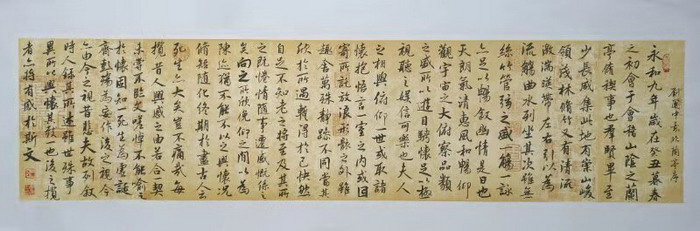 永和九年歲在癸丑暮春
之初會于會稽山陰之蘭
亭脩禊事也羣賢畢至
少長咸集此地有崇山峻
領茂林脩竹又有清流
激湍暎帶左右引以為
流觴曲水列坐其次雖無
絲竹管弦之盛一觴一詠
亦足以暢敘幽情是日也
天朗氣清惠風和暢仰
觀宇宙之大俯察品類
之盛所以遊目騁懷足以極
視聽之娛信可樂也夫人
之相與俯仰一世或取諸
懷抱悟言一室之內或因
寄所託放浪形骸之外雖
趣舍萬殊靜躁不同當其
欣於所遇蹔得於己快然
自足不知老之將至及其所
之既惓情隨事遷感慨係之
矣向之所欣俛仰之間以為
陳迹猶不能不以之興懷況
脩短隨化終期於盡古人云
死生亦大矣豈不痛哉每
攬昔人興感之由若合一契
未嘗不臨文嗟悼不能喻之
於懷固知一死生為虛誕
齊彭殤為妄作後之視今
亦由今之視昔悲夫故列敘
時人錄其所述雖世殊事
異所以興懷其致一也後之攬
者亦將有感於斯文